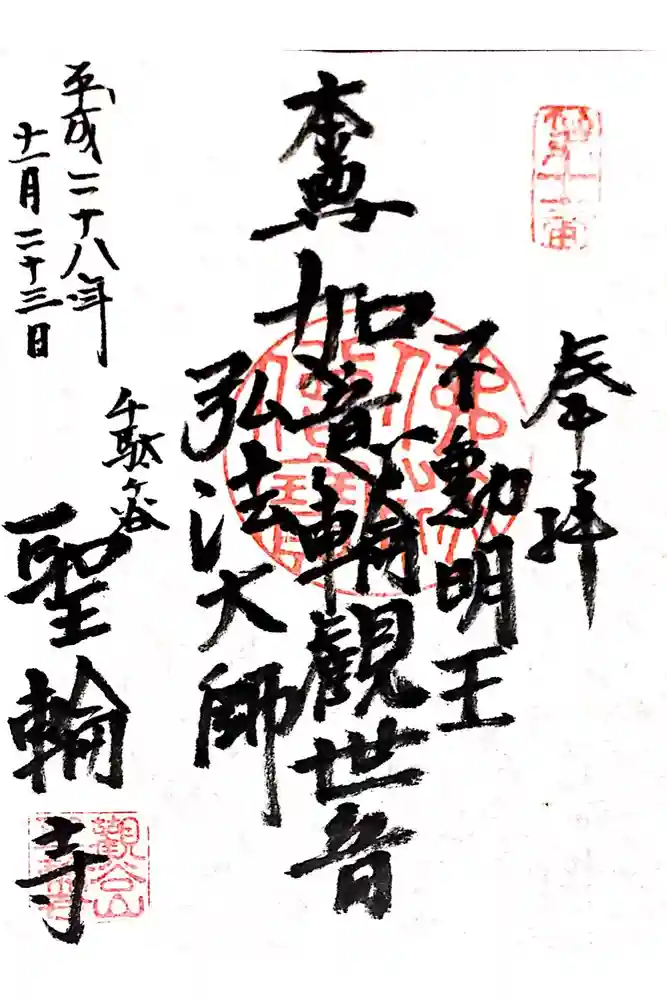 奉拝
不動明王
本尊如意輪観世音
弘法大師
平成二十八年
十一月二十三日
千駄ヶ谷
聖輪寺
觀谷山